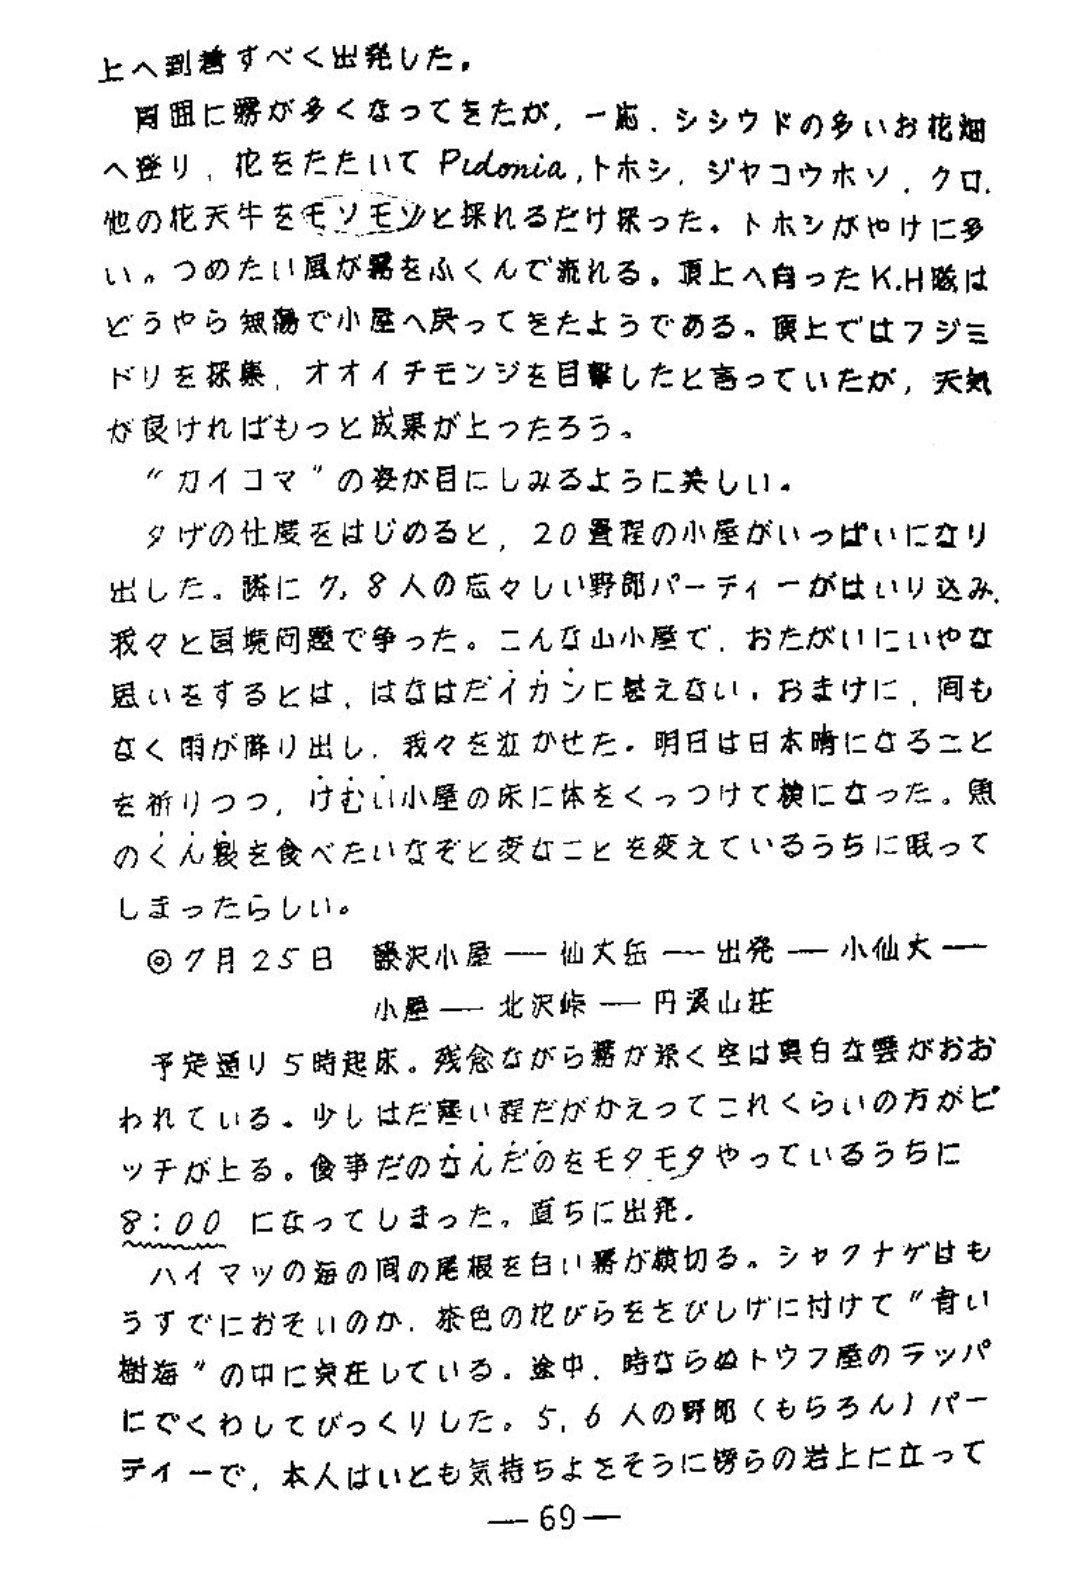 上へ到着すべく出発した。
周囲に霧が多くなってきたが,一応,シシウドの多いお花畑
へ登り,花をたたいて Pidonia,トホシ,ジャコウホソ,クロ,
他の花天牛をモソモソと採れるだけ採った。トホシがやけに多
い。つめたい風が霧をふくんで流れる。頂上へ向ったK.H隊は
どうやら無傷で小屋へ戻ってきたようである。頂上ではフジミ
ドリを採集,オオイチモンジを目撃したと言っていたが,天気
が良ければもっと成果が上ったろう。
“カイコマ”の姿が目にしみるように美しい。
夕げの仕度をはじめると,20畳程の小屋がいっぱいになり
出した。隣に7,8人の忌々しい野郎パーティーがはいり込み,
我々と国境問題で争った。こんな山小屋で,おたがいにいやな
思いをするとは,はなはだイカンに甚えない。おまけに,間も
なく雨が降り出し,我々を泣かせた。明日は日本晴になること
を祈りつつ,けむい小屋の床に体をくっつけて横になった。魚
のくん製を食べたいなぞと変なことを変えているうちに眠って
しまったらしい。
◎7月25日 藤沢小屋――仙丈岳――出発――小仙丈――
小屋――北沢峠――丹溪山荘
予定通り5時起床。残念ながら霧が深く空は真白な雲がおお
われている。少しはだ寒い程だがかえってこれくらいの方がピ
ッチが上る。食事だのなんだのをモタモタやっているうちに
8:00 になってしまった。直ちに出発。
ハイマツの海の間の尾根を白い霧が横切る。シャクナゲはも
うすでにおそいのか,茶色の花びらをさびしげに付けて“青い
樹海”の中に突在している。途中,時ならぬトウフ屋のラッパ
にでくわしてびっくりした。5,6人の野郎(もちろん)パー
ティーで,本人はいとも気持ちよさそうに傍らの岩上に立って
―69―